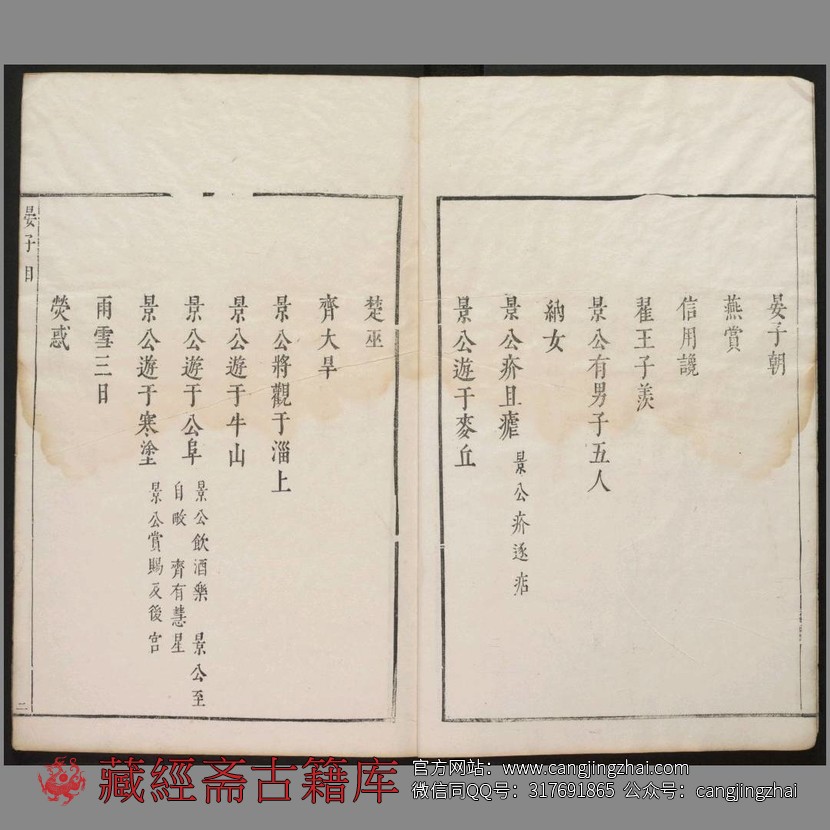 晏子朝
燕賞
信用讒
翟王子羨
景公有男子五人
納女
景公疥且瘧 景公疥遂痁
景公遊于麥丘
楚巫
齊大旱
景公將觀于淄上
景公遊于牛山
景公遊于公阜 景公飲酒樂 景公至
自畋 齊有慧星
景公遊于寒塗 景公賞賜及後宮
雨雪三日
熒惑
晏子 目
二
藏經斋古籍库
官方网站：www.cangjingzhai.com
微信同QQ号：317691865 公众号：cangjingzhai